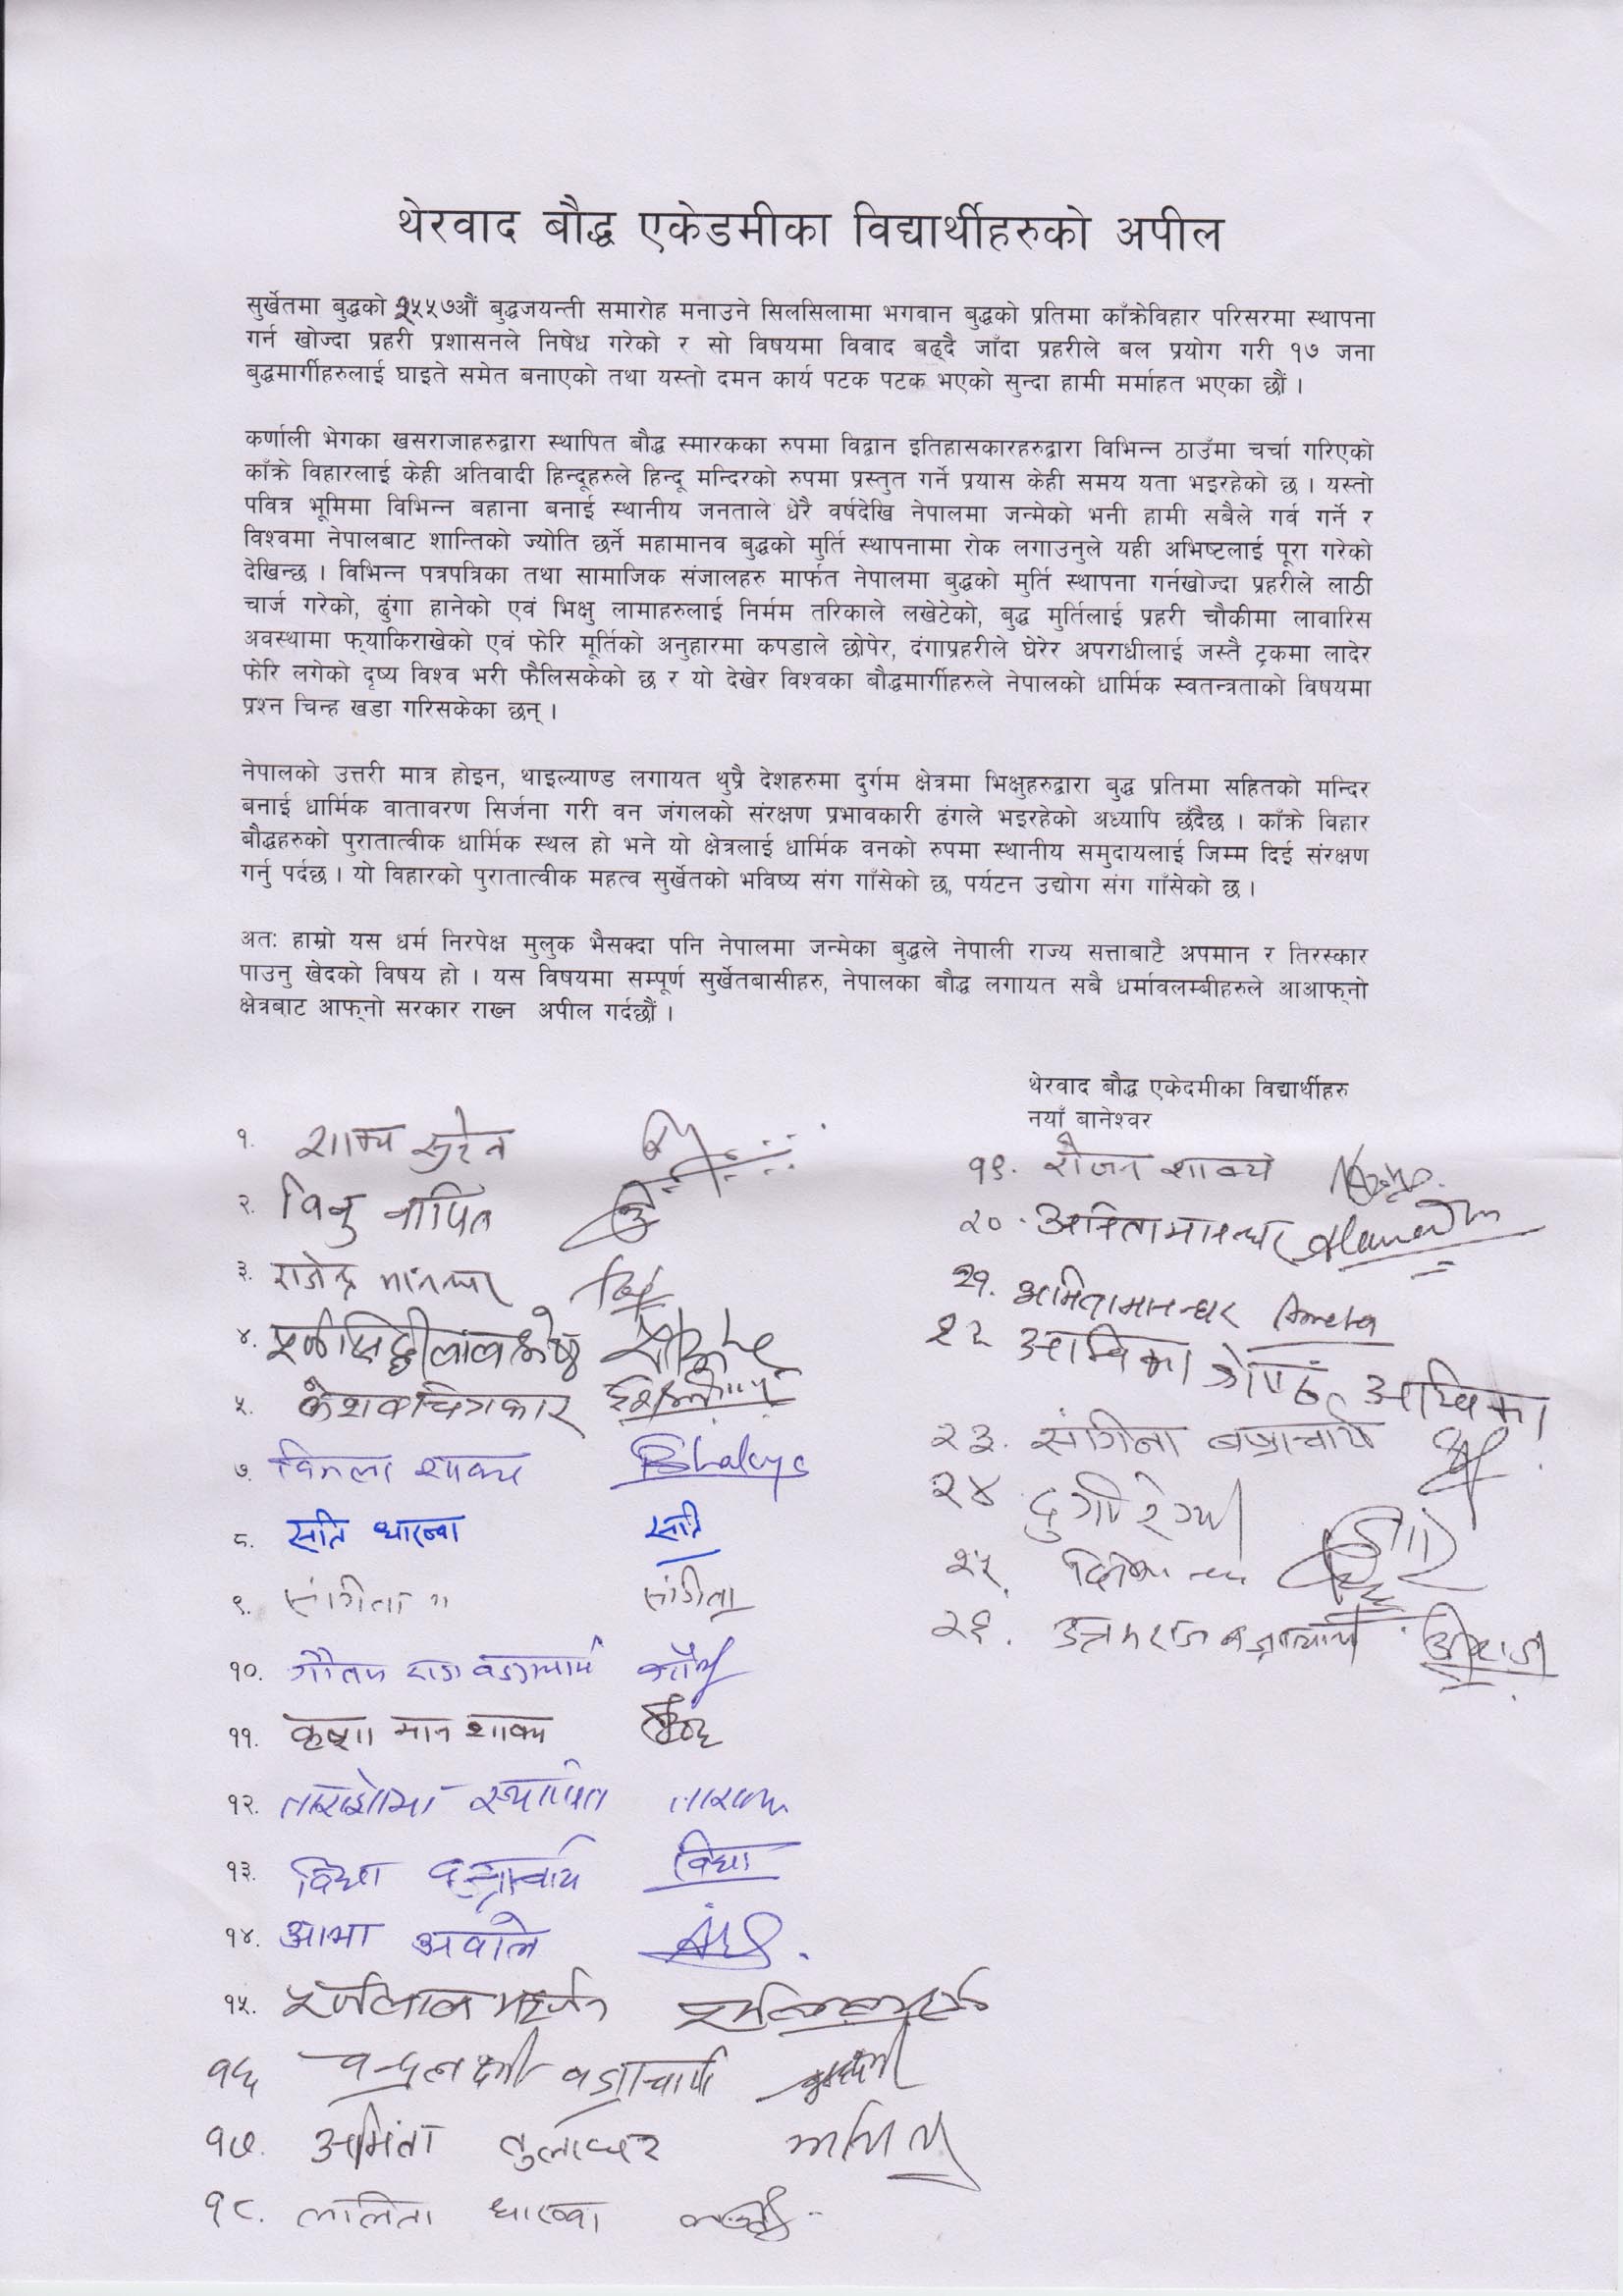 थेरवाद बौद्ध एकेडमीका विद्यार्थीहरुको अपील
सुर्खेतमा बुद्धको २५५७औं बुद्धजयन्ती समारोह मनाउने सिलसिलामा भगवान बुद्धको प्रतिमा काँक्रेविहार परिसरमा स्थापना
गर्न खोज्दा प्रहरी प्रशासनले निषेध गरेको र सो विषयमा विवाद बढ्दै जाँदा प्रहरीले बल प्रयोग गरी १७ जना
बुद्धमार्गीहरुलाई घाइते समेत बनाएको तथा यस्तो दमन कार्य पटक पटक भएको सुन्दा हामी मर्माहत भएका छौं ।
कर्णाली भेगका खसराजाहरुद्वारा स्थापित बौद्ध स्मारकका रुपमा विद्वान इतिहासकारहरुद्वारा विभिन्न ठाउँमा चर्चा गरिएको
काँक्रे विहारलाई केही अतिवादी हिन्दूहरुले हिन्दू मन्दिरको रुपमा प्रस्तुत गर्ने प्रयास केही समय यता भइरहेको छ । यस्तो
पवित्र भूमिमा विभिन्न बहाना बनाई स्थानीय जनताले धेरै वर्षदेखि नेपालमा जन्मेको भनी हामी सबैले गर्व गर्ने र
विश्वमा नेपालबाट शान्तिको ज्योति छर्ने महामानव बुद्धको मुर्ति स्थापनामा रोक लगाउनुले यही अभिष्टलाई पूरा गरेको
देखिन्छ । विभिन्न पत्रपत्रिका तथा सामाजिक संजालहरु मार्फत नेपालमा बुद्धको मुर्ति स्थापना गर्नखोज्दा प्रहरीले लाठी
चार्ज गरेको, ढुंगा हानेको एवं भिक्षु लामाहरुलाई निर्मम तरिकाले लखेटेको, बुद्ध मुर्तिलाई प्रहरी चौकीमा लावारिस
अवस्थामा फ्याकिराखेको एवं फेरि मूर्तिको अनुहारमा कपडाले छोपेर, दंगाप्रहरीले घेरेर अपराधीलाई जस्तै ट्रकमा लादेर
फेरि लगेको दृष्य विश्व भरी फैलिसकेको छ र यो देखेर विश्वका बौद्धमार्गीहरुले नेपालको धार्मिक स्वतन्त्रताको विषयमा
प्रश्न चिन्ह खडा गरिसकेका छन् ।
नेपालको उत्तरी मात्र होइन, थाइल्याण्ड लगायत थुप्रै देशहरुमा दुर्गम क्षेत्रमा भिक्षुहरुद्वारा बुद्ध प्रतिमा सहितको मन्दिर
बनाई धार्मिक वातावरण सिर्जना गरी वन जंगलको संरक्षण प्रभावकारी ढंगले भइरहेको अध्यापि छँदैछ । काँक्रे विहार
बौद्धहरुको पुरातात्वीक धार्मिक स्थल हो भने यो क्षेत्रलाई धार्मिक वनको रुपमा स्थानीय समुदायलाई जिम्म दिई संरक्षण
गर्नु पर्दछ । यो विहारको पुरातात्वीक महत्व सुर्खेतको भविष्य संग गाँसेको छ, पर्यटन उद्योग संग गाँसेको छ ।
अतः हाम्रो यस धर्म निरपेक्ष मुलुक भैसक्दा पनि नेपालमा जन्मेका बुद्धले नेपाली राज्य सत्ताबाटै अपमान र तिरस्कार
पाउनु खेदको विषय हो । यस विषयमा सम्पूर्ण सुर्खेतबासीहरु, नेपालका बौद्ध लगायत सबै धर्मावलम्बीहरुले आआफ्नो
क्षेत्रबाट आफ्नो सरकार राख्न अपील गर्दछौं ।
थेरवाद बौद्ध एकेदमीका विद्यार्थीहरु
नयाँ बानेश्वर
१. शाक्य सुरेन
२. विनु नापित
३. राजेन्द्र मानन्धर
४.
५. केशव चित्रकार
७. विमला शाक्य
८. सति धारन्वा सति
९. संगिता " संगिता
१०. गौतम राज वज्राचार्य
११. कृष्ण मान शाक्य
१२. ताराशोभा स्थापित
१३. विद्या वज्राचार्य विद्या
१४. आभा अवाले
१५. महर्जन
१६ चन्द्रलक्ष्मी वज्राचार्य
१७. अमिता तुलाधर
१८. ललिता धारन्वा
१९. रोजन शाक्य
२०. अनिता मानन्धर
२१. अमिता मानन्धर Ameta
२२ अम्बिका श्रेष्ठ अम्बिका
२३. संगिना बज्राचार्य
२४ दुर्गा रेग्मी
२५.
२६. उत्तमराज बज्राचार्य